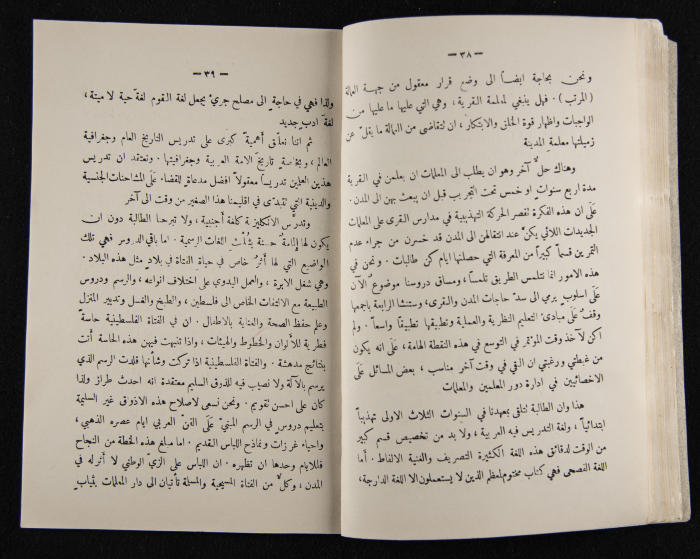 — ٣٨ —
ونحن بحاجة ايضاً الى وضع قرار معقول من جهة العمالة
(المرتب). فهل ينبغي لمعلمة القرية، وهي التي عليها ما عليها من
الواجبات واظهار قوة الخلق والابتكار، ان تتقاضى من العمالة ما يقل عن
زميلتها معلمة المدينة
وهناك حلٌ آخر وهو ان يطلب الى المعلمات ان يعلمن في القرية
مدة اربع سنوات او خمس تحت التجريب قبل ان يبعث بهن الى المدن.
عَلَى ان هذه الفكرة تقصر الحركة التهذيبية في مدارس القرى على المعلمات
الجديدات اللائي يكنَّ عند انتقالهن الى المدن قد خسرن من جراء عدم
التمرين قسماً كبيراً من المعرفة التي حصلنها ايام كن طالبات. ونحن في
هذه الامور انما نتلمس الطريق تلمساً، ومساق دروسنا موضوعٌ الآن
عَلَى اسلوبٍ يرمي الى سدّ حاجات المدن والقرى، وستنشأ الرابعة باجمعها
وقفٌ عَلَى مبادئ التعليم النظرية والعملية وتطبيقها تطبيقاً واسعاً. ولم
اكن لآخذ وقت المؤتمر في التوسع في هذه النقطة الهامة، عَلَى انه يكون
من غبطتي ورغبتي ان القي في وقت آخر مناسب، بعض المسائل عَلَى
الاخصائيين في ادارة دور المعلمين والمعلمات
هذا وان الطالبة تتلقى بمعهدنا في السنوات الثلاث الاولى تهذيباً
ابتدائياً، ولغة التدريس فيه العربية، ولا بد من تخصيص قسم كبير
من الوقت لدقائق هذه اللغة الكثيرة التصريف والغنية الالفاظ. أما
اللغة الفصحى فهي كتاب مختوم لمعظم الذين لا يستعملون الا اللغة الدارجة،
— ٣٩ —
ولذا فهي في حاجةٍ الى مصلح جريءٍ يجعل لغة القوم لغة حية لا ميتة،
لغة ادبٍ جديد
ثم اننا نعلّق أهميةً كبرى على تدريس التاريخ العام وجغرافية
العالم، وبخاصةٍ تاريخَ الامة العربية وجغرافيتها. ونعتقد ان تدريس
هذين العلمين تدريساً معقولاً افضل مدعاةٍ للقضاء عَلَى المشاحنات الجنسية
والدينية التي تتبدّى في اقليمنا هذا الصغير من وقت الى آخر
وتدرَّس الانكليزية كلغة أجنبية، ولا تبرحنا الطالبة دون ان
يكون لها إلمامةٌ حسنة بثُلثَ اللغات الرسمية. اما باقي الدروس فهي تلك
المواضيع التي لها أثرٌ خاص في حياة الفتاة في بلادٍ مثل هذه البلاد.
وهي شغل الابرة، والعمل اليدوي على اختلاف انواعه، والرسم ودروس
الطبيعة مع الالتفات الخاص الى فلسطين، والطبخ والغسل وتدبير المنزل
وعلم حفظ الصحة والعناية بالاطفال. ان في الفتاة الفلسطينية حاسةً
فطرية للالوان والخطوط والهيئات، واذا تنبهت فيهن هذه الحاسة أتت
بنتائج مدهشة. والفتاة الفلسطينية اذا تركت وشأنها قلدت الرسم الذي
يرسم بالآلة ولا نصيب فيه للذوق السليم معتقدة انه احدث طراز ولذا
كان على احسن تقويم. ونحن نسعى لاصلاح هذه الاذواق غير السليمة
بتعليم دروسٍ في الرسم المبنيّ عَلَى الفنّ العربي ايام عصره الذهبي،
واحياء غرزات ونماذج اللباس القديم. اما مبلغ هذه الخطة من النجاح
فللايام وحدها ان تظهره. ان اللباس على الزي الوطني لا أثر له في
المدن، وكلٌّ من الفتاة المسيحية والمسلمة تأتيان الى دار المعلمات بثيابٍ